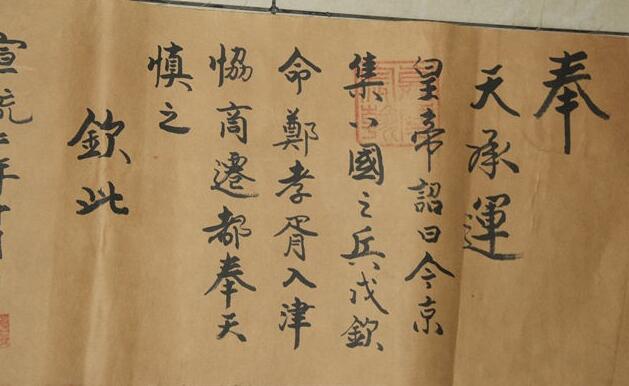 奉
天承運
皇帝詔曰今京
集八國之兵戎欽
命鄭孝胥入津
恊商遷都奉天
慎之
欽此
宣統二年十月